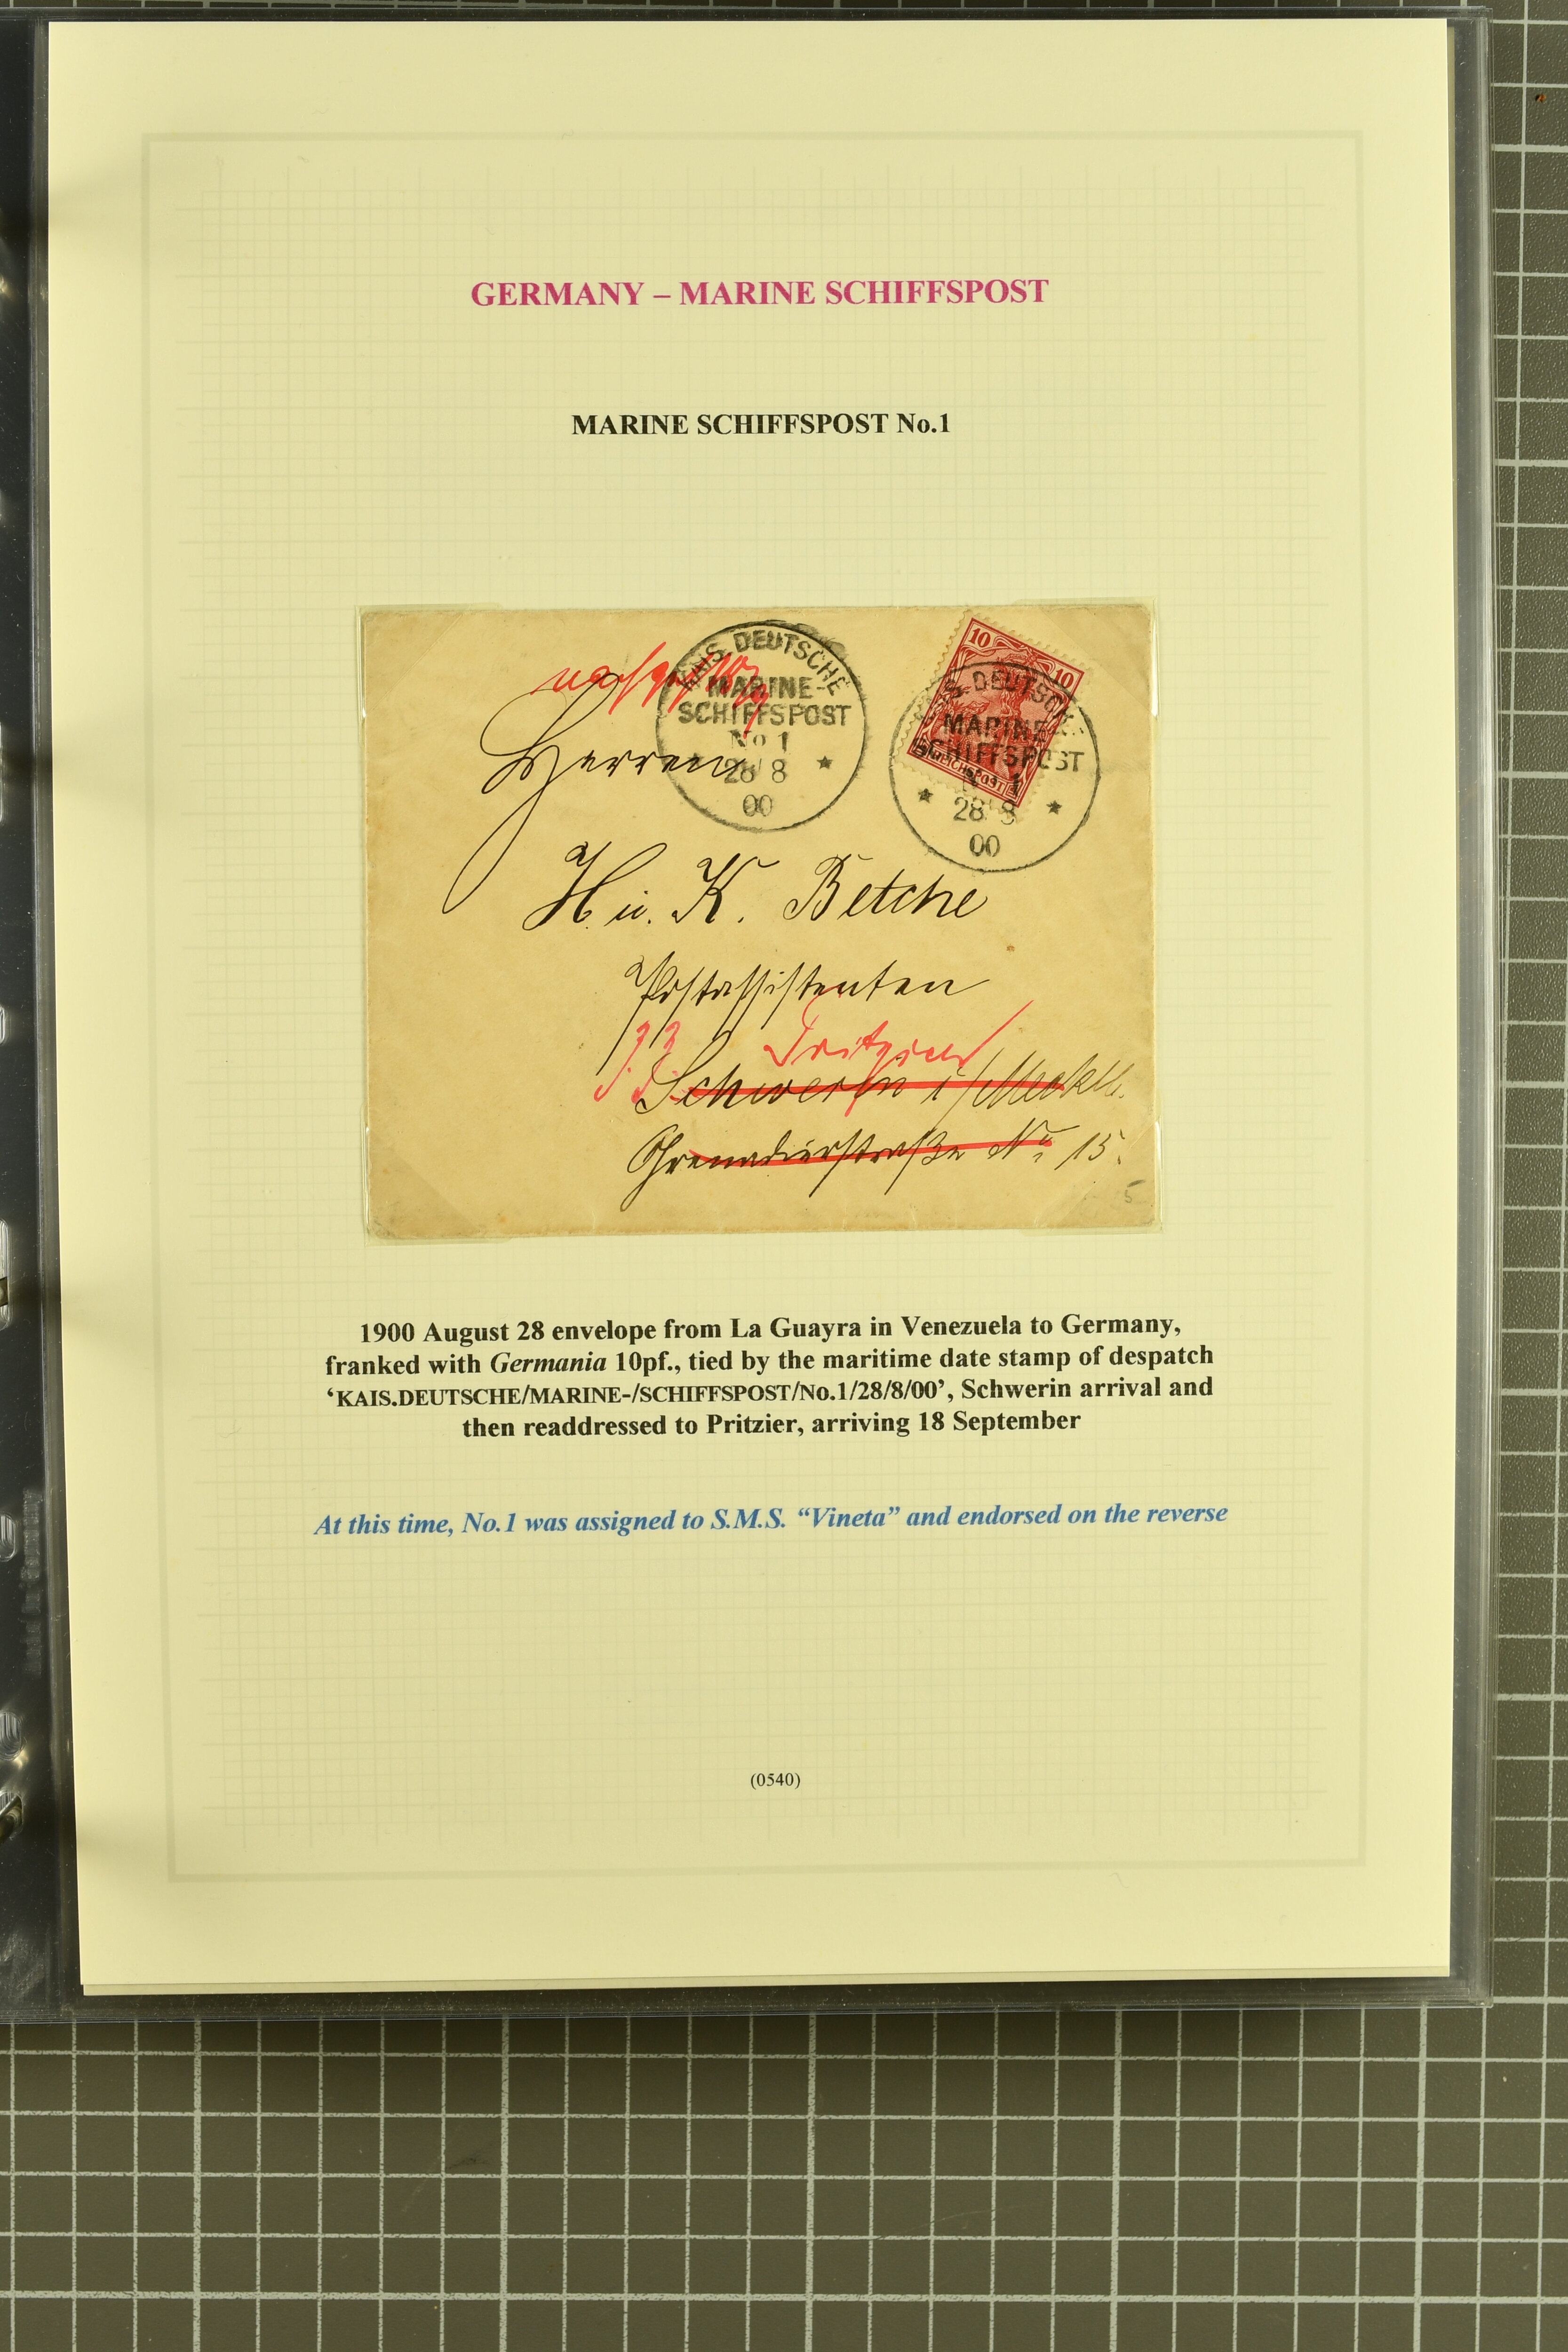 GERMANY – MARINE SCHIFFSPOST
MARINE SCHIFFSPOST No.1
KAIS. DEUTSCHE
MARINE-
SCHIFFSPOST
No 1
28 8
00
10
10
REICHSPOST
KAIS. DEUTSCHE
MARINE-
SCHIFFSPOST
No 1
28 8
00
Herren
H u. K. Betche
Postassistenten
Pritzier
Schwerin i/Meckl.
Grenadierstraße No 15.
5
1900 August 28 envelope from La Guayra in Venezuela to Germany,
franked with Germania 10pf., tied by the maritime date stamp of despatch
‘KAIS.DEUTSCHE/MARINE-/SCHIFFSPOST/No.1/28/8/00’, Schwerin arrival and
then readdressed to Pritzier, arriving 18 September
At this time, No.1 was assigned to S.M.S. “Vineta” and endorsed on the reverse
(0540)